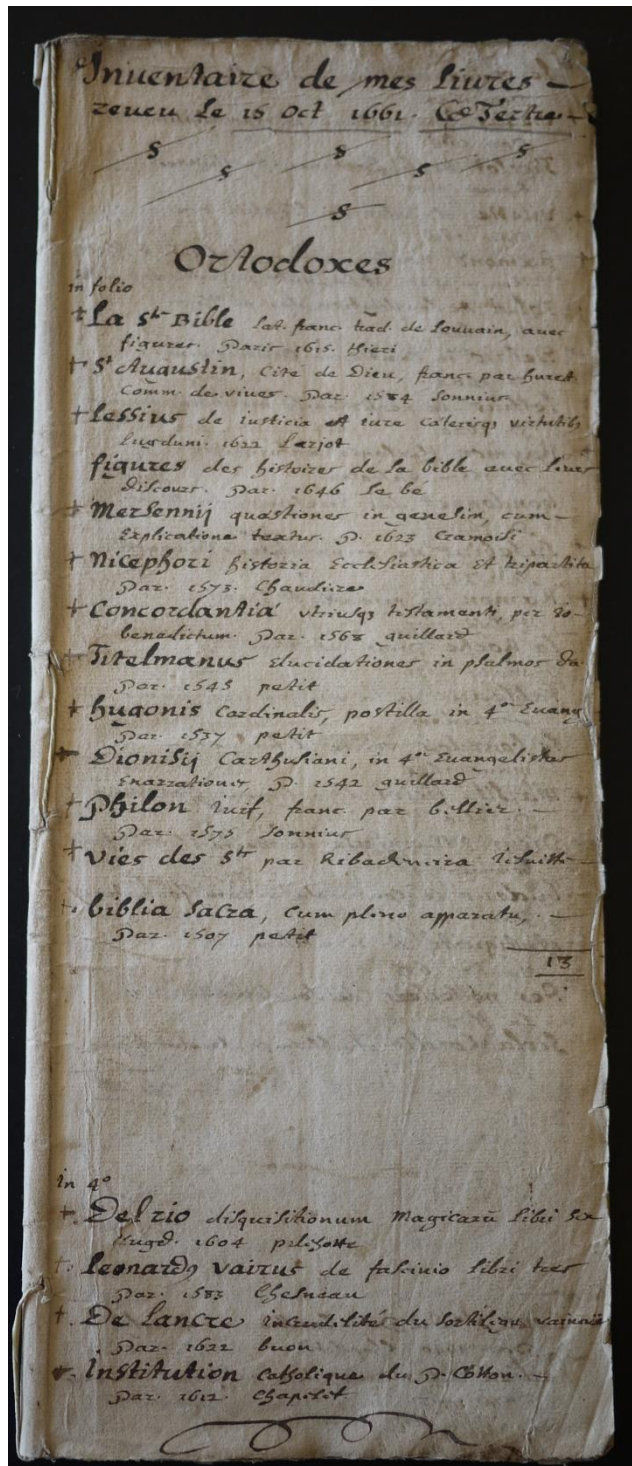 Inuentaire de mes liures
reueu le 15 Oct 1661.
S S S
S S
S
Ortodoxes
in folio
+ La Ste Bible lat. franc. trad. de Louuain, auec
figures. Paris 1615. thieri
+ St Augustin, Cité de Dieu, franc. par
Comm. de viues. Par. 1584 Sonnius
+ Lessius de iusticia et iure virtutibs
Lugduni. 1622 Larjot
figures des histoires de la bible auec leurs
discours. Par. 1646 le bé
+ Mersennij quæstiones in genesin, cum
Explicatione textus. P. 1623 Cramoisi
+ Nicephori historia Ecclesiastica et tripartita
Par. 1573. Chaudiere
+ Concordantiæ vtriusqz testamenti, per io
benedictum. Par. 1568 guillard
+ Titelmanus Elucidationes in psalmos
Par. 1545 petit
+ hugonis Cardinalis, postilla in 4or Euang
Par. 1537 petit
+ Dionisij Carthusiani, in 4or Euangelistas
Enarrationes P. 1542 guillard
+ Philon Iuif, franc. par bellier.
Par. 1575 Sonnius
+ Vies des Sts par Ribadeneira Iesuitte
+ biblia sacra, cum pleno apparatu,
Par. 1507 petit
13
In 4o
+ Delrio disquisitionum Magicarū libri sex
Lugd. 1604 pilehotte
+ Leonardq vairus de fascinio libri tres
Par. 1583 Chesneau
+ De Lancre incredulité du sortilege
Par. 1622 buon
+ Institution catholique du P. Cotton.
Par. 1612 Chapelet